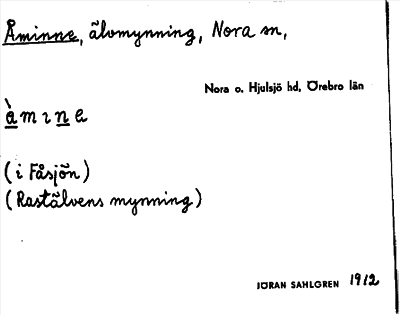 Åminne, älvmynning, Nora sn,
Nora o. Hjulsjö hd, Örebro län
åmıne
(i Fåsjön)
(Rastälvens mynning)
JÖRAN SAHLGREN 1912